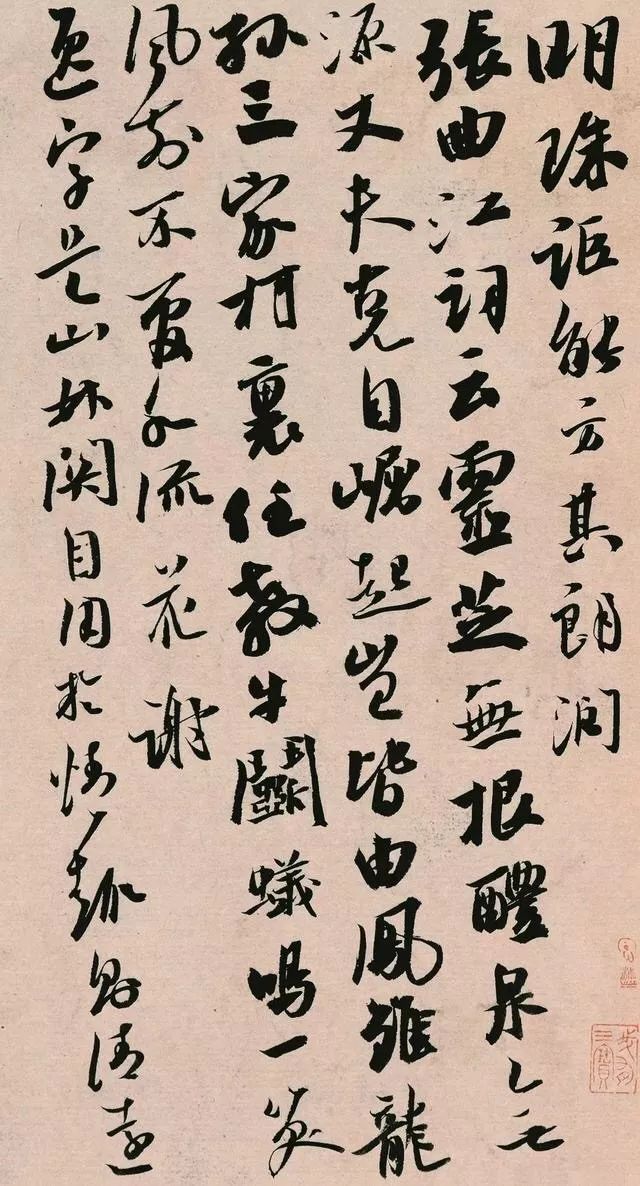 明珠詎能方其朗潤
張曲江詞云靈芝無根醴泉無
源丈夫克自崛起豈皆由鳳雛龍
孫三家村裏任教牛鬬蟻鳴一笑
風前不管水流花謝
逸字是山林関目用於情趣則清遠